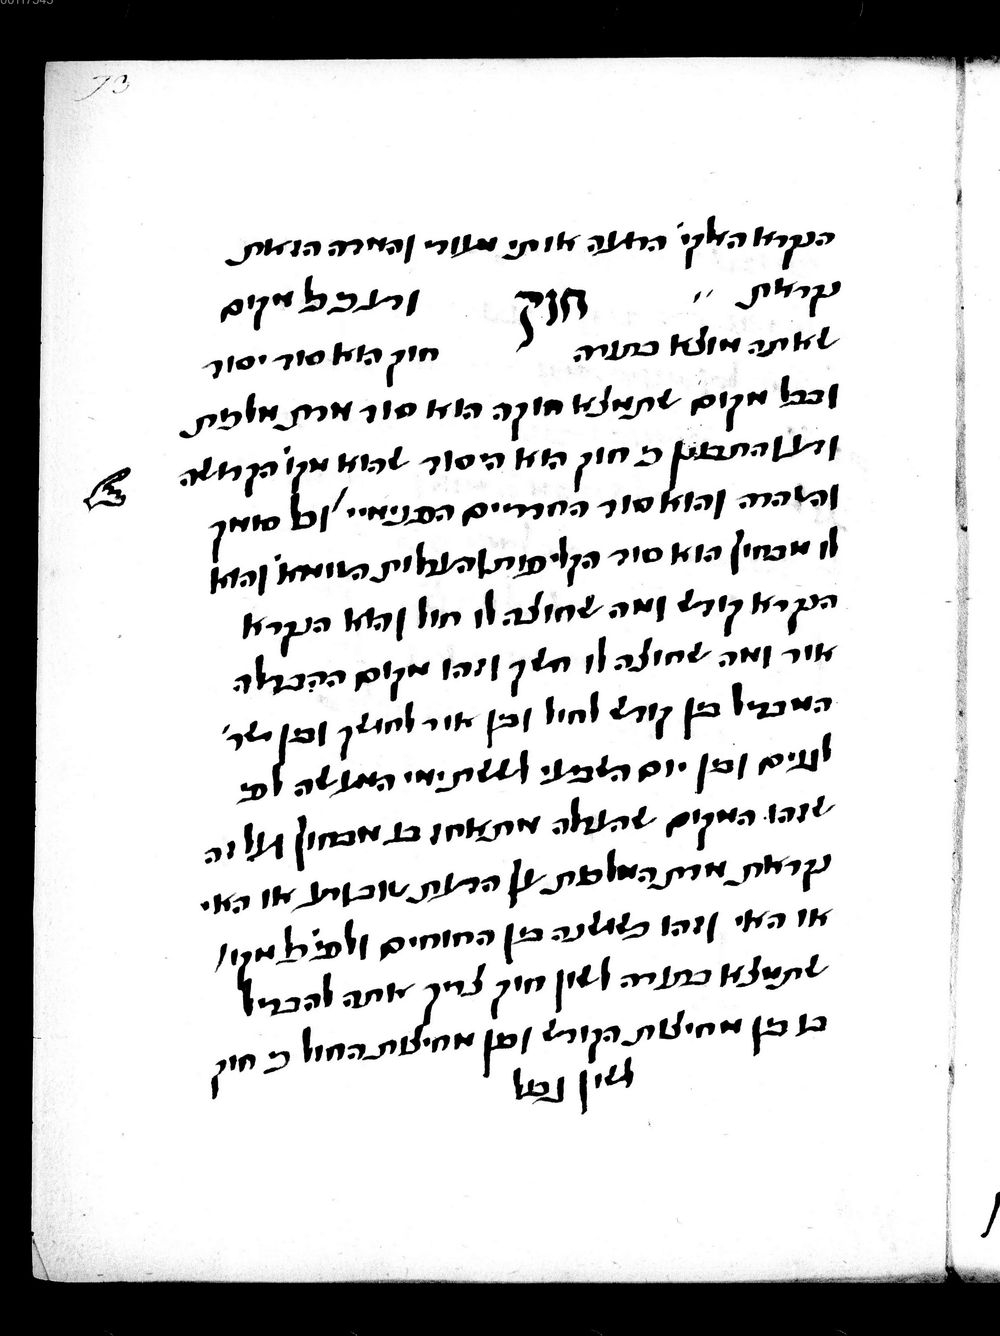 73
הנקרא האלקי' הרועה אותי מעודי והמדה הזאת
נקראת ״ חוק ודע כי כל מקום
שאתה מוצא בתורה חוק הוא סוד יסוד
ובכל מקום שתמצא חוקה הוא סוד מדת מלכות
ודע והתבונן כי חוק הוא היסוד שהוא מקו' הקדושה
והטהרה והוא סוד החדרים הפנימיי' וכל סומך
לו מבחוץ הוא סוד הקליפות והערלות הטומא' והוא
הנקרא קודש ומה שחוצה לו חול והוא הנקרא
אור ומה שחוצה לו חשך וזהו מקום ההבדלה
המבדיל בין קודש לחול ובין אור לחושך ובין ישר'
לגוים ובין יום השביעי לששת ימי המעשה לפי
שזהו המקום שהערלה מתאחז בו מבחוץ ועל זה
נקראת מדת המלכות עץ הדעת טוב ורע או האי
או האי וזהו כשושנה בין החוחים ולפי' כל מקו'
שתמצא בתורה לשון חוק צריך אתה להבדיל
בו בין מחיצות הקודש ובין מחיצות החול כי חוק
לשון נופל